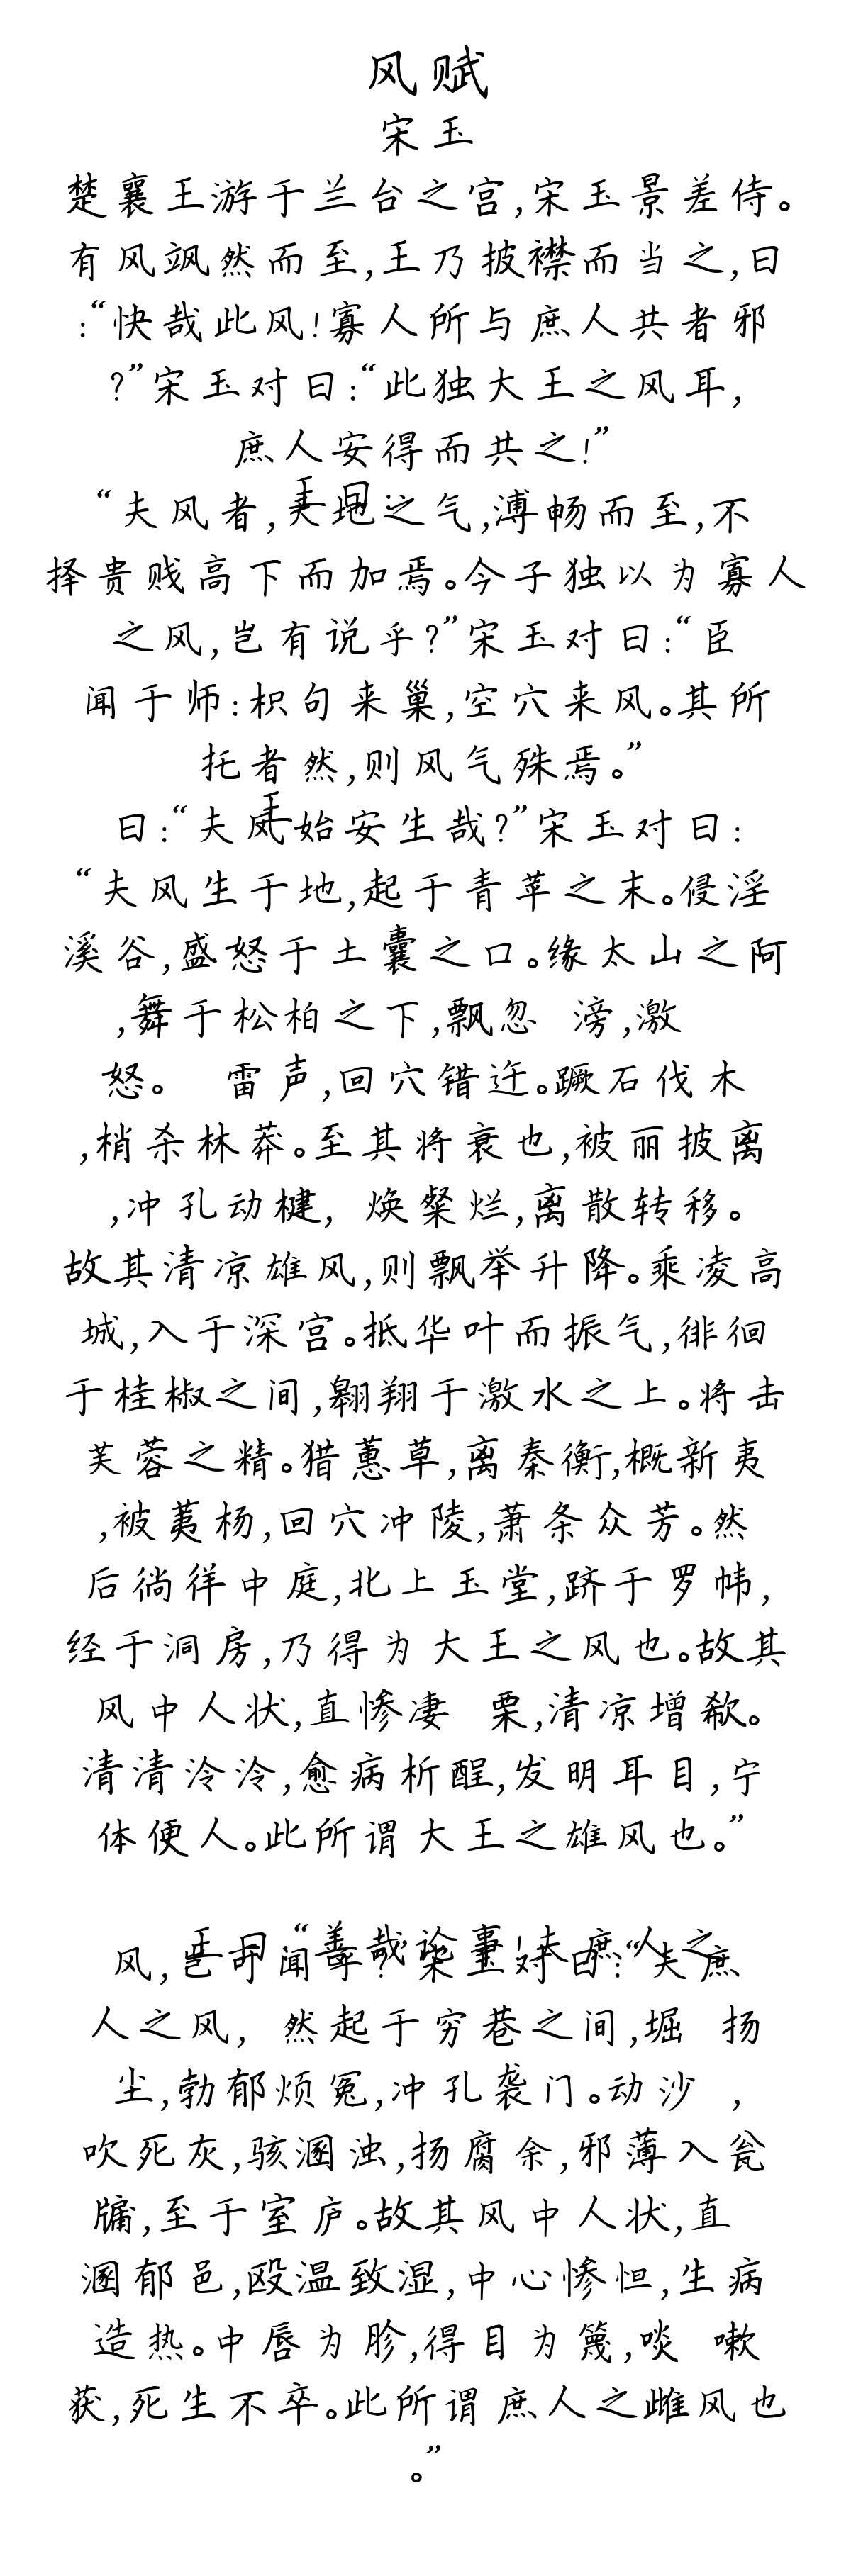 风赋
宋玉
楚襄王游于兰台之宫,宋玉景差侍。
有风飒然而至,王乃披襟而当之,曰
:“快哉此风!寡人所与庶人共者邪
?”宋玉对曰:“此独大王之风耳,
庶人安得而共之!”
王曰:
“夫风者,天地之气,溥畅而至,不
择贵贱高下而加焉。今子独以为寡人
之风,岂有说乎?”宋玉对曰:“臣
闻于师:枳句来巢,空穴来风。其所
托者然,则风气殊焉。”
王
曰:“夫风始安生哉?”宋玉对曰:
“夫风生于地,起于青苹之末。侵淫
溪谷,盛怒于土囊之口。缘太山之阿
,舞于松柏之下,飘忽 滂,激
怒。 雷声,回穴错迕。蹶石伐木
,梢杀林莽。至其将衰也,被丽披离
,冲孔动楗, 焕粲烂,离散转移。
故其清凉雄风,则飘举升降。乘凌高
城,入于深宫。抵华叶而振气,徘徊
于桂椒之间,翱翔于激水之上。将击
芙蓉之精。猎蕙草,离秦衡,概新夷
,被荑杨,回穴冲陵,萧条众芳。然
后徜徉中庭,北上玉堂,跻于罗帏,
经于洞房,乃得为大王之风也。故其
风中人状,直惨凄 栗,清凉增欷。
清清泠泠,愈病析酲,发明耳目,宁
体便人。此所谓大王之雄风也。”
王曰“善哉论事!夫庶人之
风,岂可闻乎?”宋玉对曰:“夫庶
人之风, 然起于穷巷之间,堀 扬
尘,勃郁烦冤,冲孔袭门。动沙 ,
吹死灰,骇溷浊,扬腐余,邪薄入瓮
牖,至于室庐。故其风中人状,直
溷郁邑,殴温致湿,中心惨怛,生病
造热。中唇为胗,得目为篾,啖 嗽
获,死生不卒。此所谓庶人之雌风也
。”